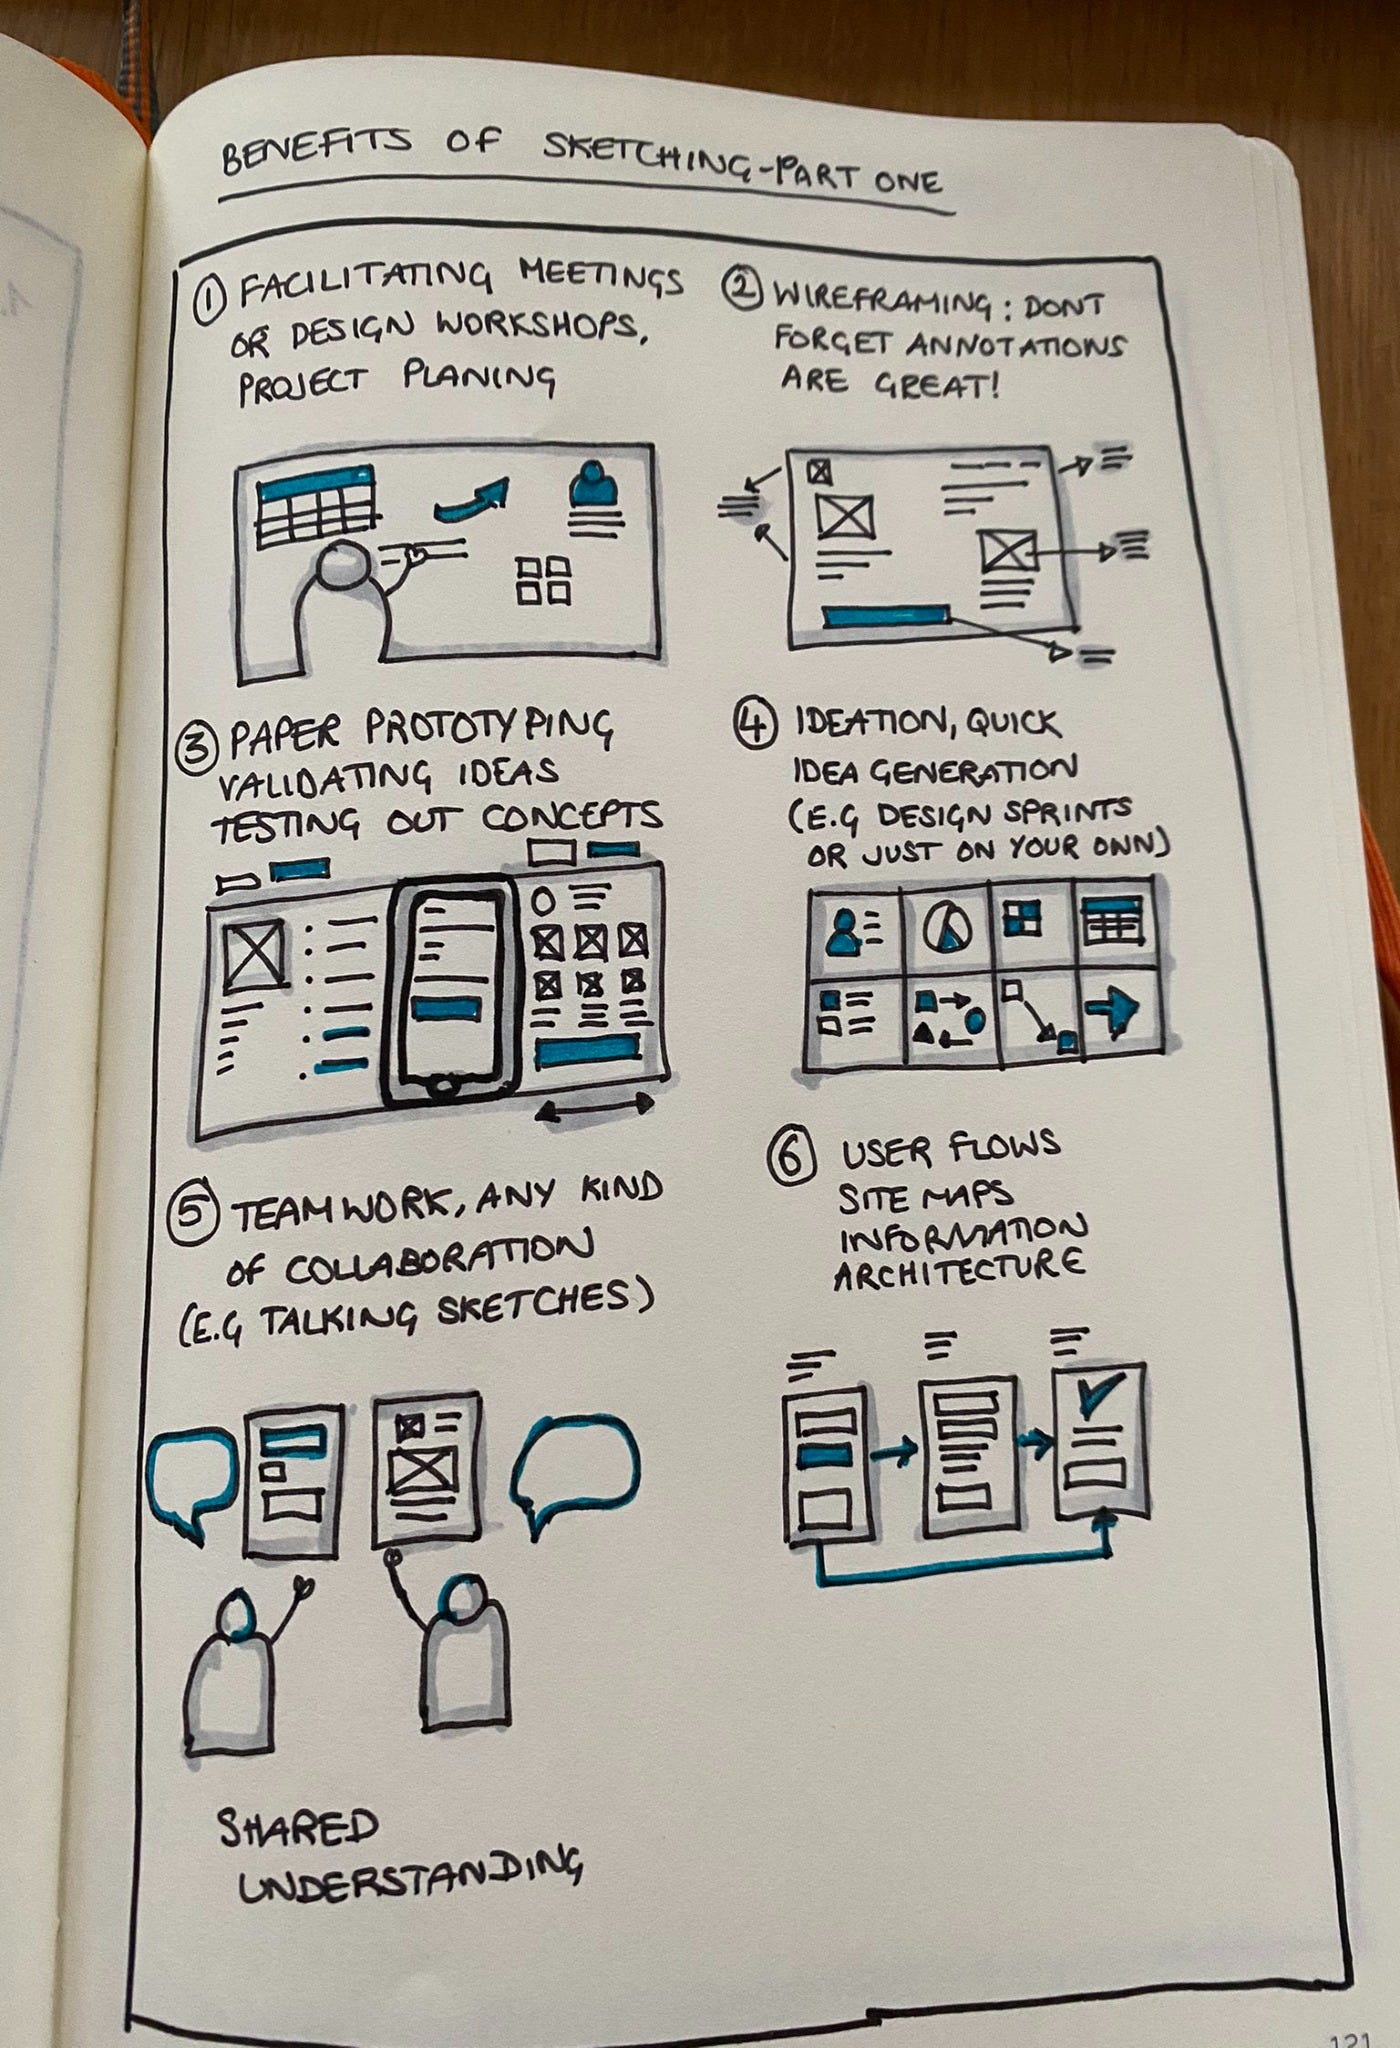 BENEFITS OF SKETCHING-PART ONE
① FACILITATING MEETINGS
OR DESIGN WORKSHOPS,
PROJECT PLANING
② WIREFRAMING: DONT
FORGET ANNOTATIONS
ARE GREAT!
③ PAPER PROTOTYPING
VALIDATING IDEAS
TESTING OUT CONCEPTS
④ IDEATION, QUICK
IDEA GENERATION
(E.G DESIGN SPRINTS
OR JUST ON YOUR OWN)
⑤ TEAMWORK, ANY KIND
OF COLLABORATION
(E.G TALKING SKETCHES)
⑥ USER FLOWS
SITE MAPS
INFORMATION
ARCHITECTURE
SHARED
UNDERSTANDING
121